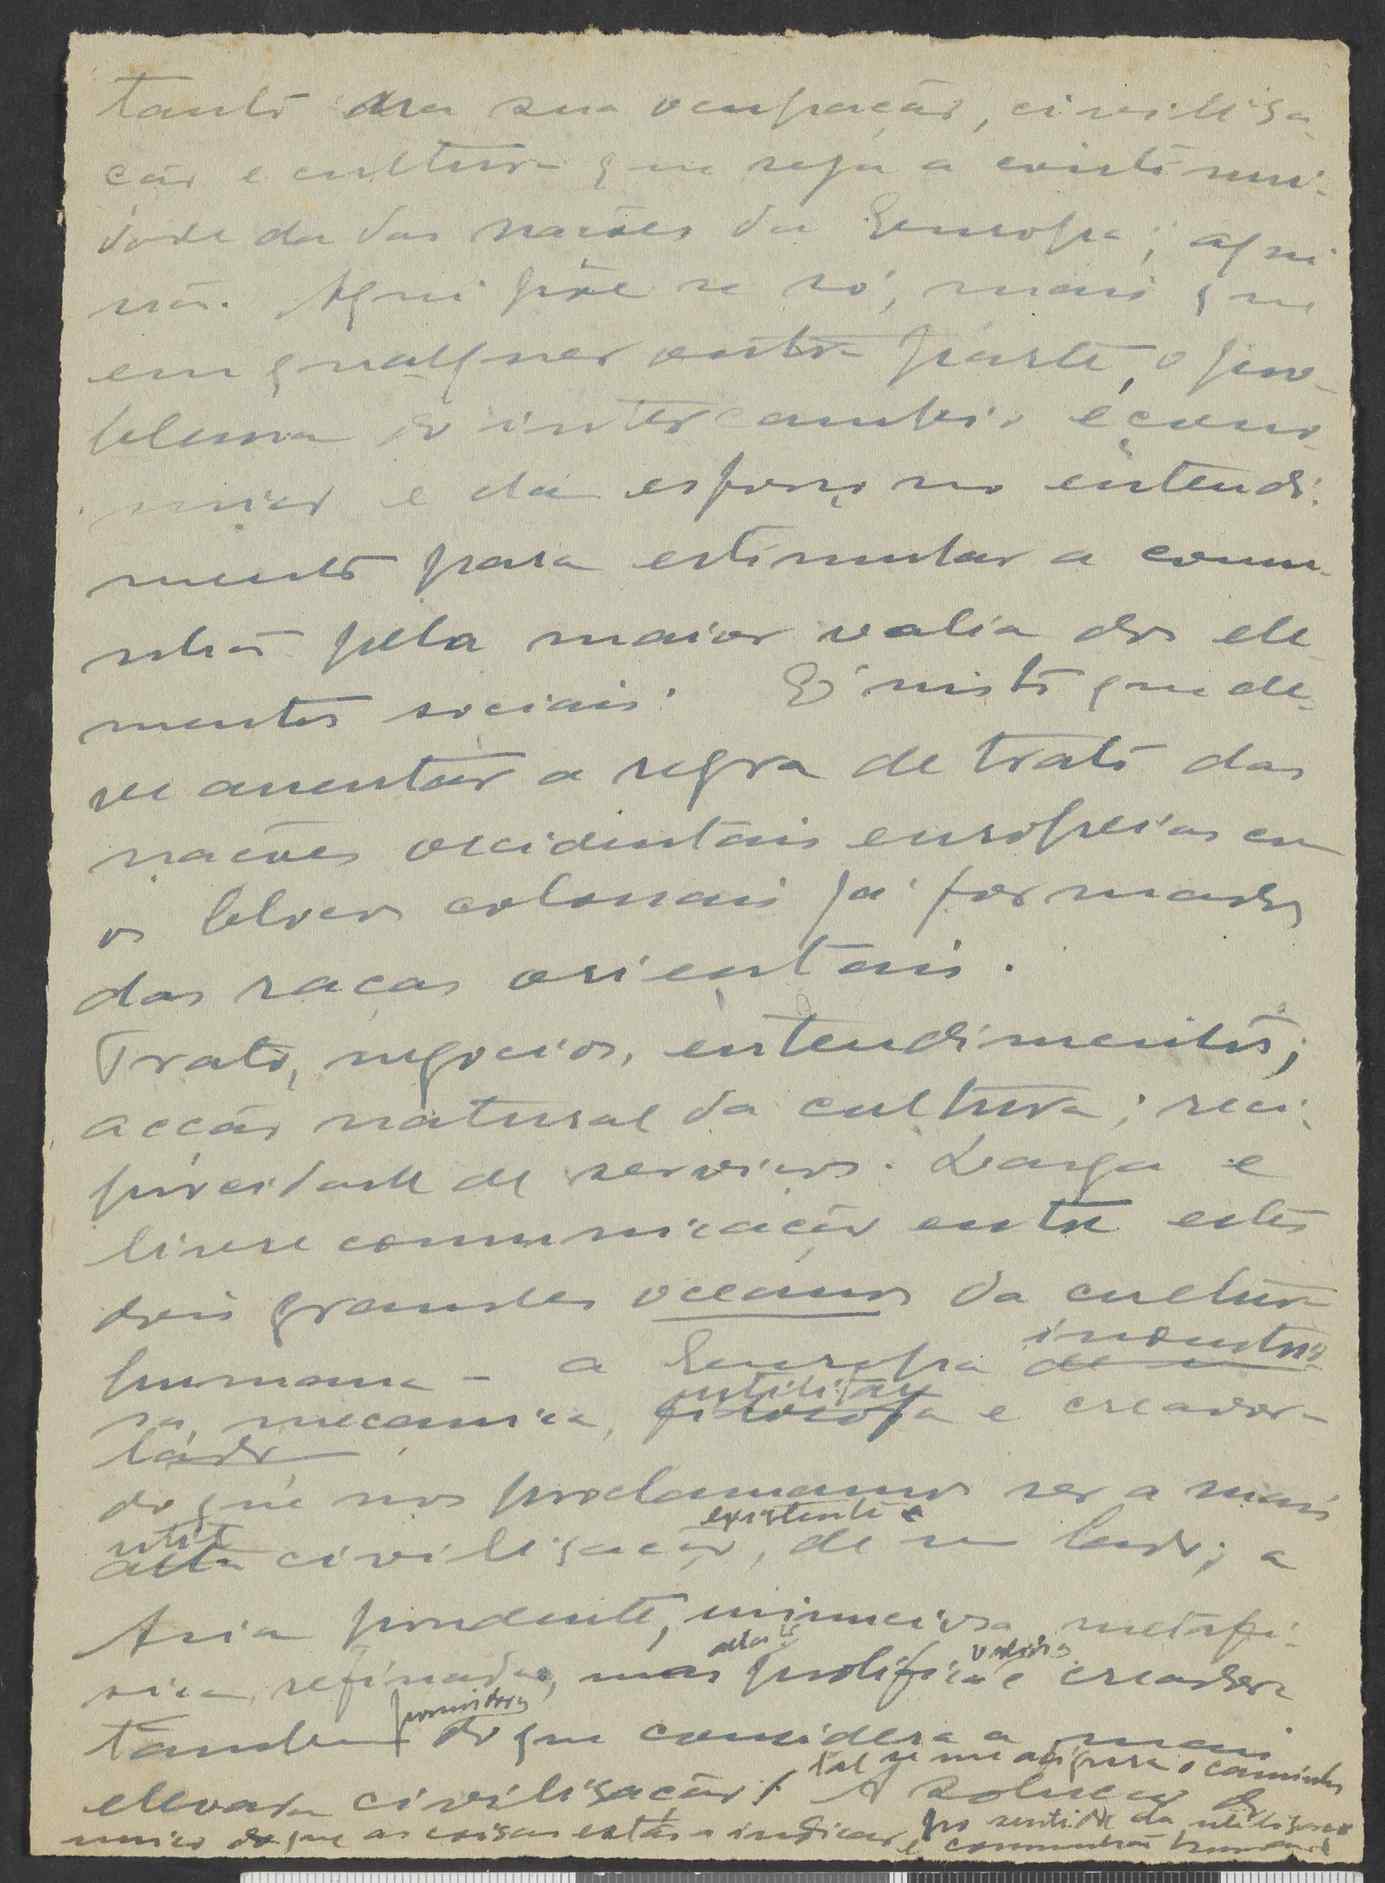 tanto da sua ocupação, civilisa-
ção e cultura que seja a contimui-
dade da das nações da Europa; aqui
não. Aqui põe se só, mais que
em qualquer outra parte, o pro-
blema do intercambio econo-
mico e da esforço no entendi-
mento para estimular a comu-
nhão pela maior valia dos ele-
mentos sociais. É nisto que de-
ve assentar a regra de trato das
nações occidentais europeias com
os blocos colonais já formados
das raças orientais.
Trato, negocios, entendimentos;
acção natural da cultura; reci-
procidade de serviços. Larga e
livre communicação entre estes
dois grandes oceanos da cultura
humana - a Europa de um industrio
sa, mecanica, filosofa utilitaria e creadora
lado
do que nos proclamamos ser a mais
alta util civilisação existente, de um lado; a
Asia prudente, minuciosa, metafi-
sica, refinada, mas alta prolifica e creadora
tambem promitora do que considera a mais
elevada civilisação! A solução do tal se me afigura o caminho
unico do que as coisas estão a indicar, no sentido da utilisação
e communhão humana